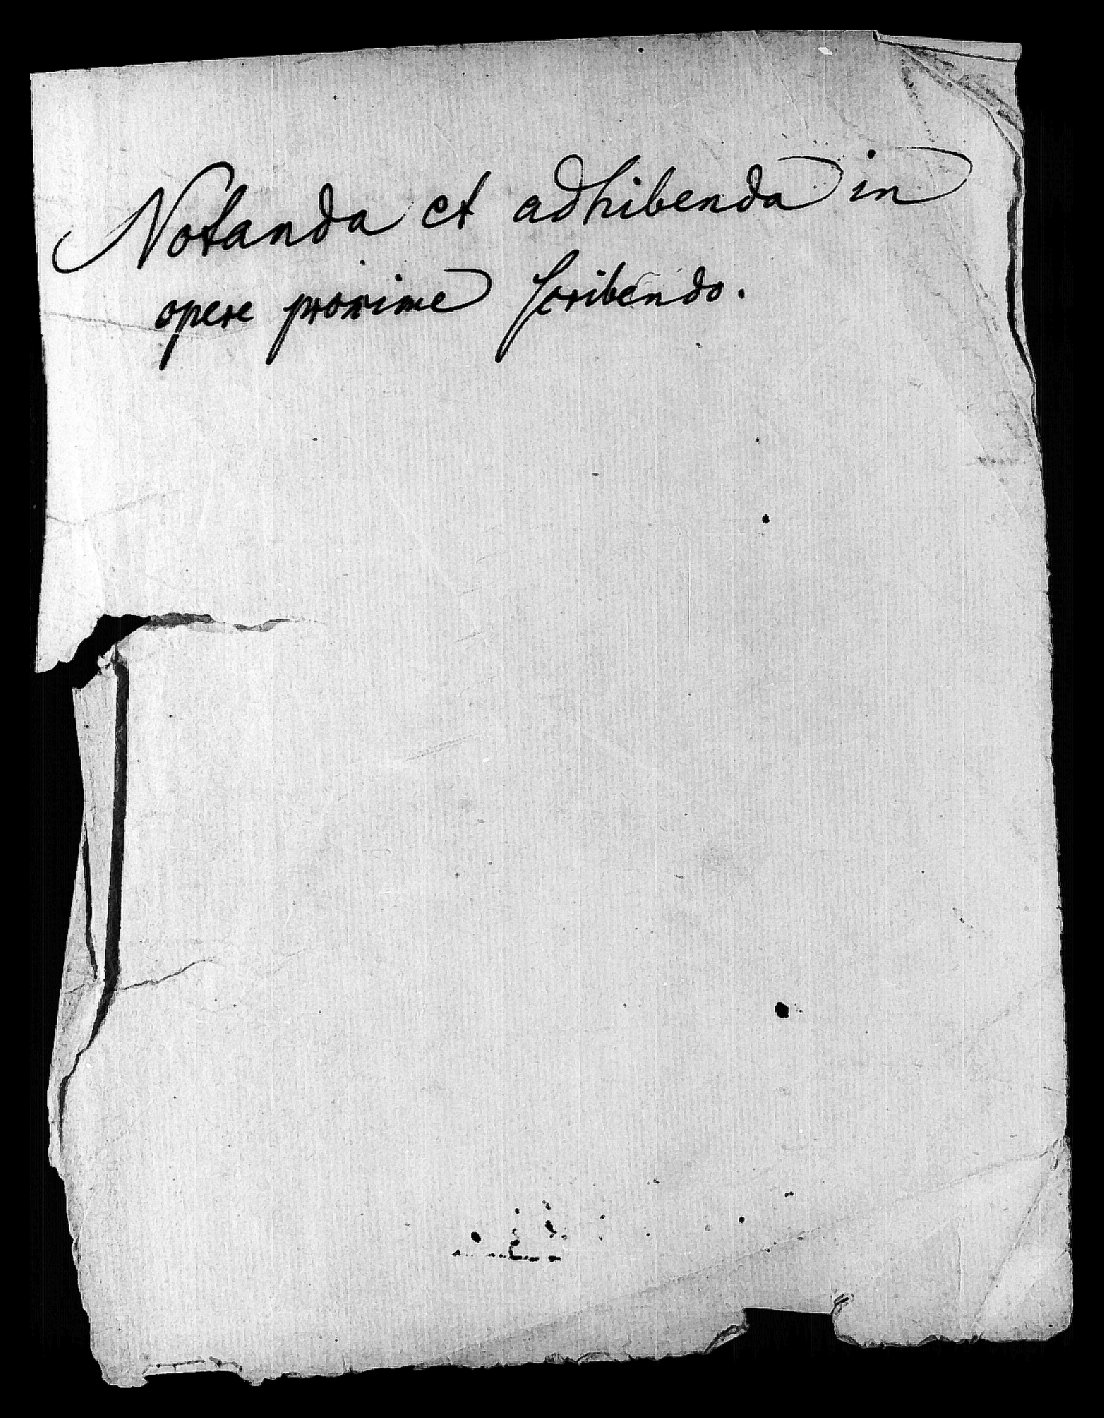 Notanda et adhibenda in
opere proxime scribendo.